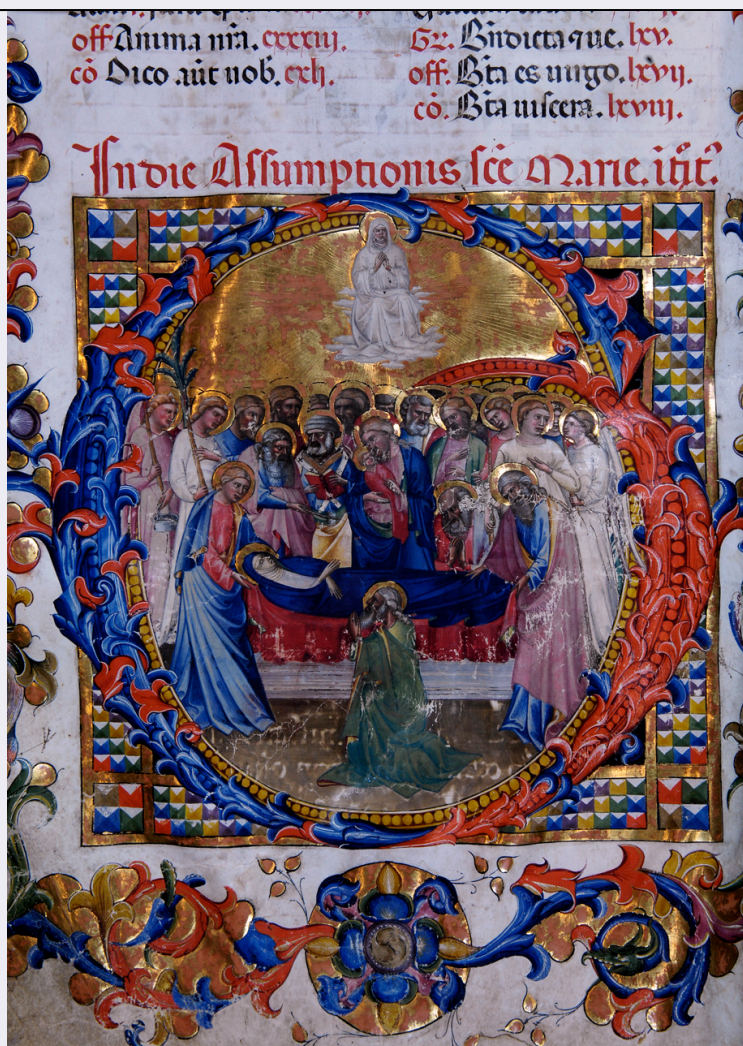 off Anima nr̄a. cxxxiij.
cō Dico aūt uob̄. cxlj.
Gr̄. Bn̄dicta que. lxv.
off. Bt̄a es uirgo. lxvij.
cō. Bt̄a uiscera. lxviij.
In die Assumptionis sc̄e Marie.